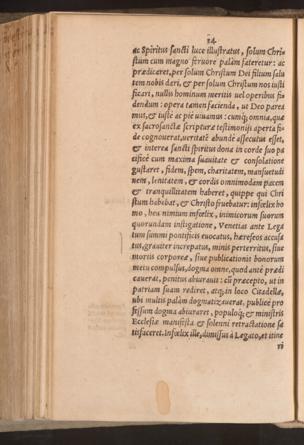 14
ac Spiritus sancti luce illustratus, solum Chri=
stum cum magno feruore palàm fateretur: ac
prædicaret, per solum Christum Dei filium salu
tem nobis dari, & per solum Christum nos iusti
ficari, nullis hominum meritis uel operibus fi=
dendum: opera tamen facienda, ut Deo parea
mus, & iustè ac piè uiuamus: cumq́; omnia, quæ
ex sacrosanctæ scripturæ testimonijs aperta fi=
de cognouerat, ueritatē abundè assecutus esset,
& interea sancti spiritus dona in corde suo pa
cificè cum maxima suauitate & consolatione
gustaret, fidem, spem, charitatem, mansuetudi
nem, lenitatem, & cordis omnimodam pacem
& tranquillitatem haberet, quippe qui Chri
stum habebat, & Christo fruebatur: infœlix ho
mo, heu nimium infœlix, inimicorum suorum
quorundam instigatione, Venetias ante Lega
tum summi pontificis euocatus, hæreseos accusa
tus, grauiter increpatus, minis perterritus, siue
mortis corporeæ, siue publicationis bonorum
metu compulsus, dogma omne, quod antè prædi
cauerat, penitus abiurauit: cū præcepto, ut in
patriam suam rediret, atq; in loco Citadellæ,
ubi multis palàm dogmatizauerat, publicè pro
fessum dogma abiuraret, populoq́; & ministris
Ecclesiæ manifesta & solenni retractatione sa
tisfaceret. Infœlix ille, dimissus à Legato, et itine
ri